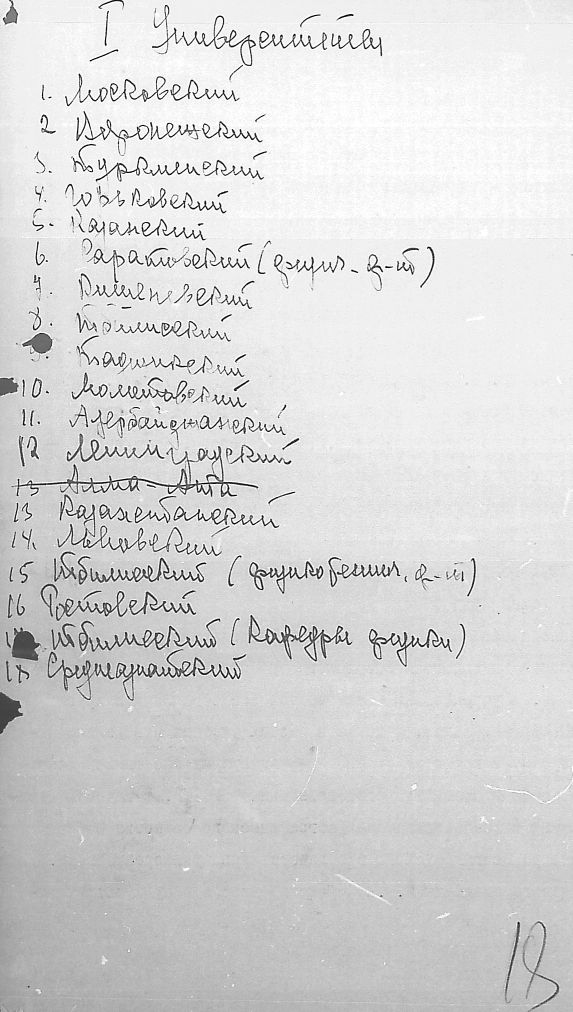 I Университеты
1. Московский
2 Воронежский
3. Туркменский
4. Горьковский
5. Казанский
6. Саратовский (физич. ф-т)
7. Кишеневский
8. Тбилисский
9. Таджикский
10. Молотовский
11. Азербайджанский
12 Ленинградский
13 Алма-Ата
13 Казахстанский
14. Львовский
15 Тбилисский (физикотехнич. ф-т)
16 Ростовский
17 Тбилисский (Кафедры физики)
18 Среднеазиатский
18